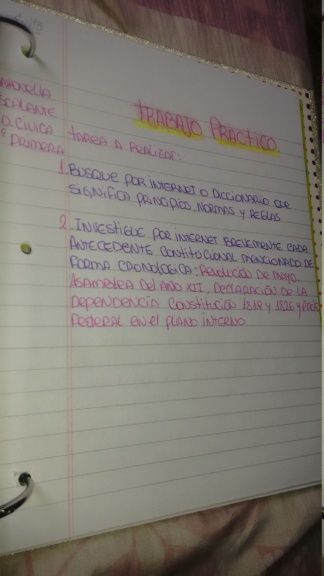 TRABAJO PRACTICO
ANTONELLA
ESCALANTE
D. CIVICA
PRIMERA
TAREA A REALIZAR:
1. BUSQUE POR INTERNET O DICCIONARIO QUE
SIGNIFICA PRINCIPIOS, NORMAS Y REGLAS
2. INVESTIGUE POR INTERNET BREVEMENTE CADA
ANTECEDENTE CONTITUCIONAL MENCIONADO DE
FORMA CRONOLOGICA: REVOLUCIÓN DE MAYO,
ASAMBLEA DEL AÑO XII, DECLARACIÓN DE LA
DEPENDENCIA CONSTITUCIÓN 1819 Y 1826 Y
FEDERAL EN EL PLANO INTERNO